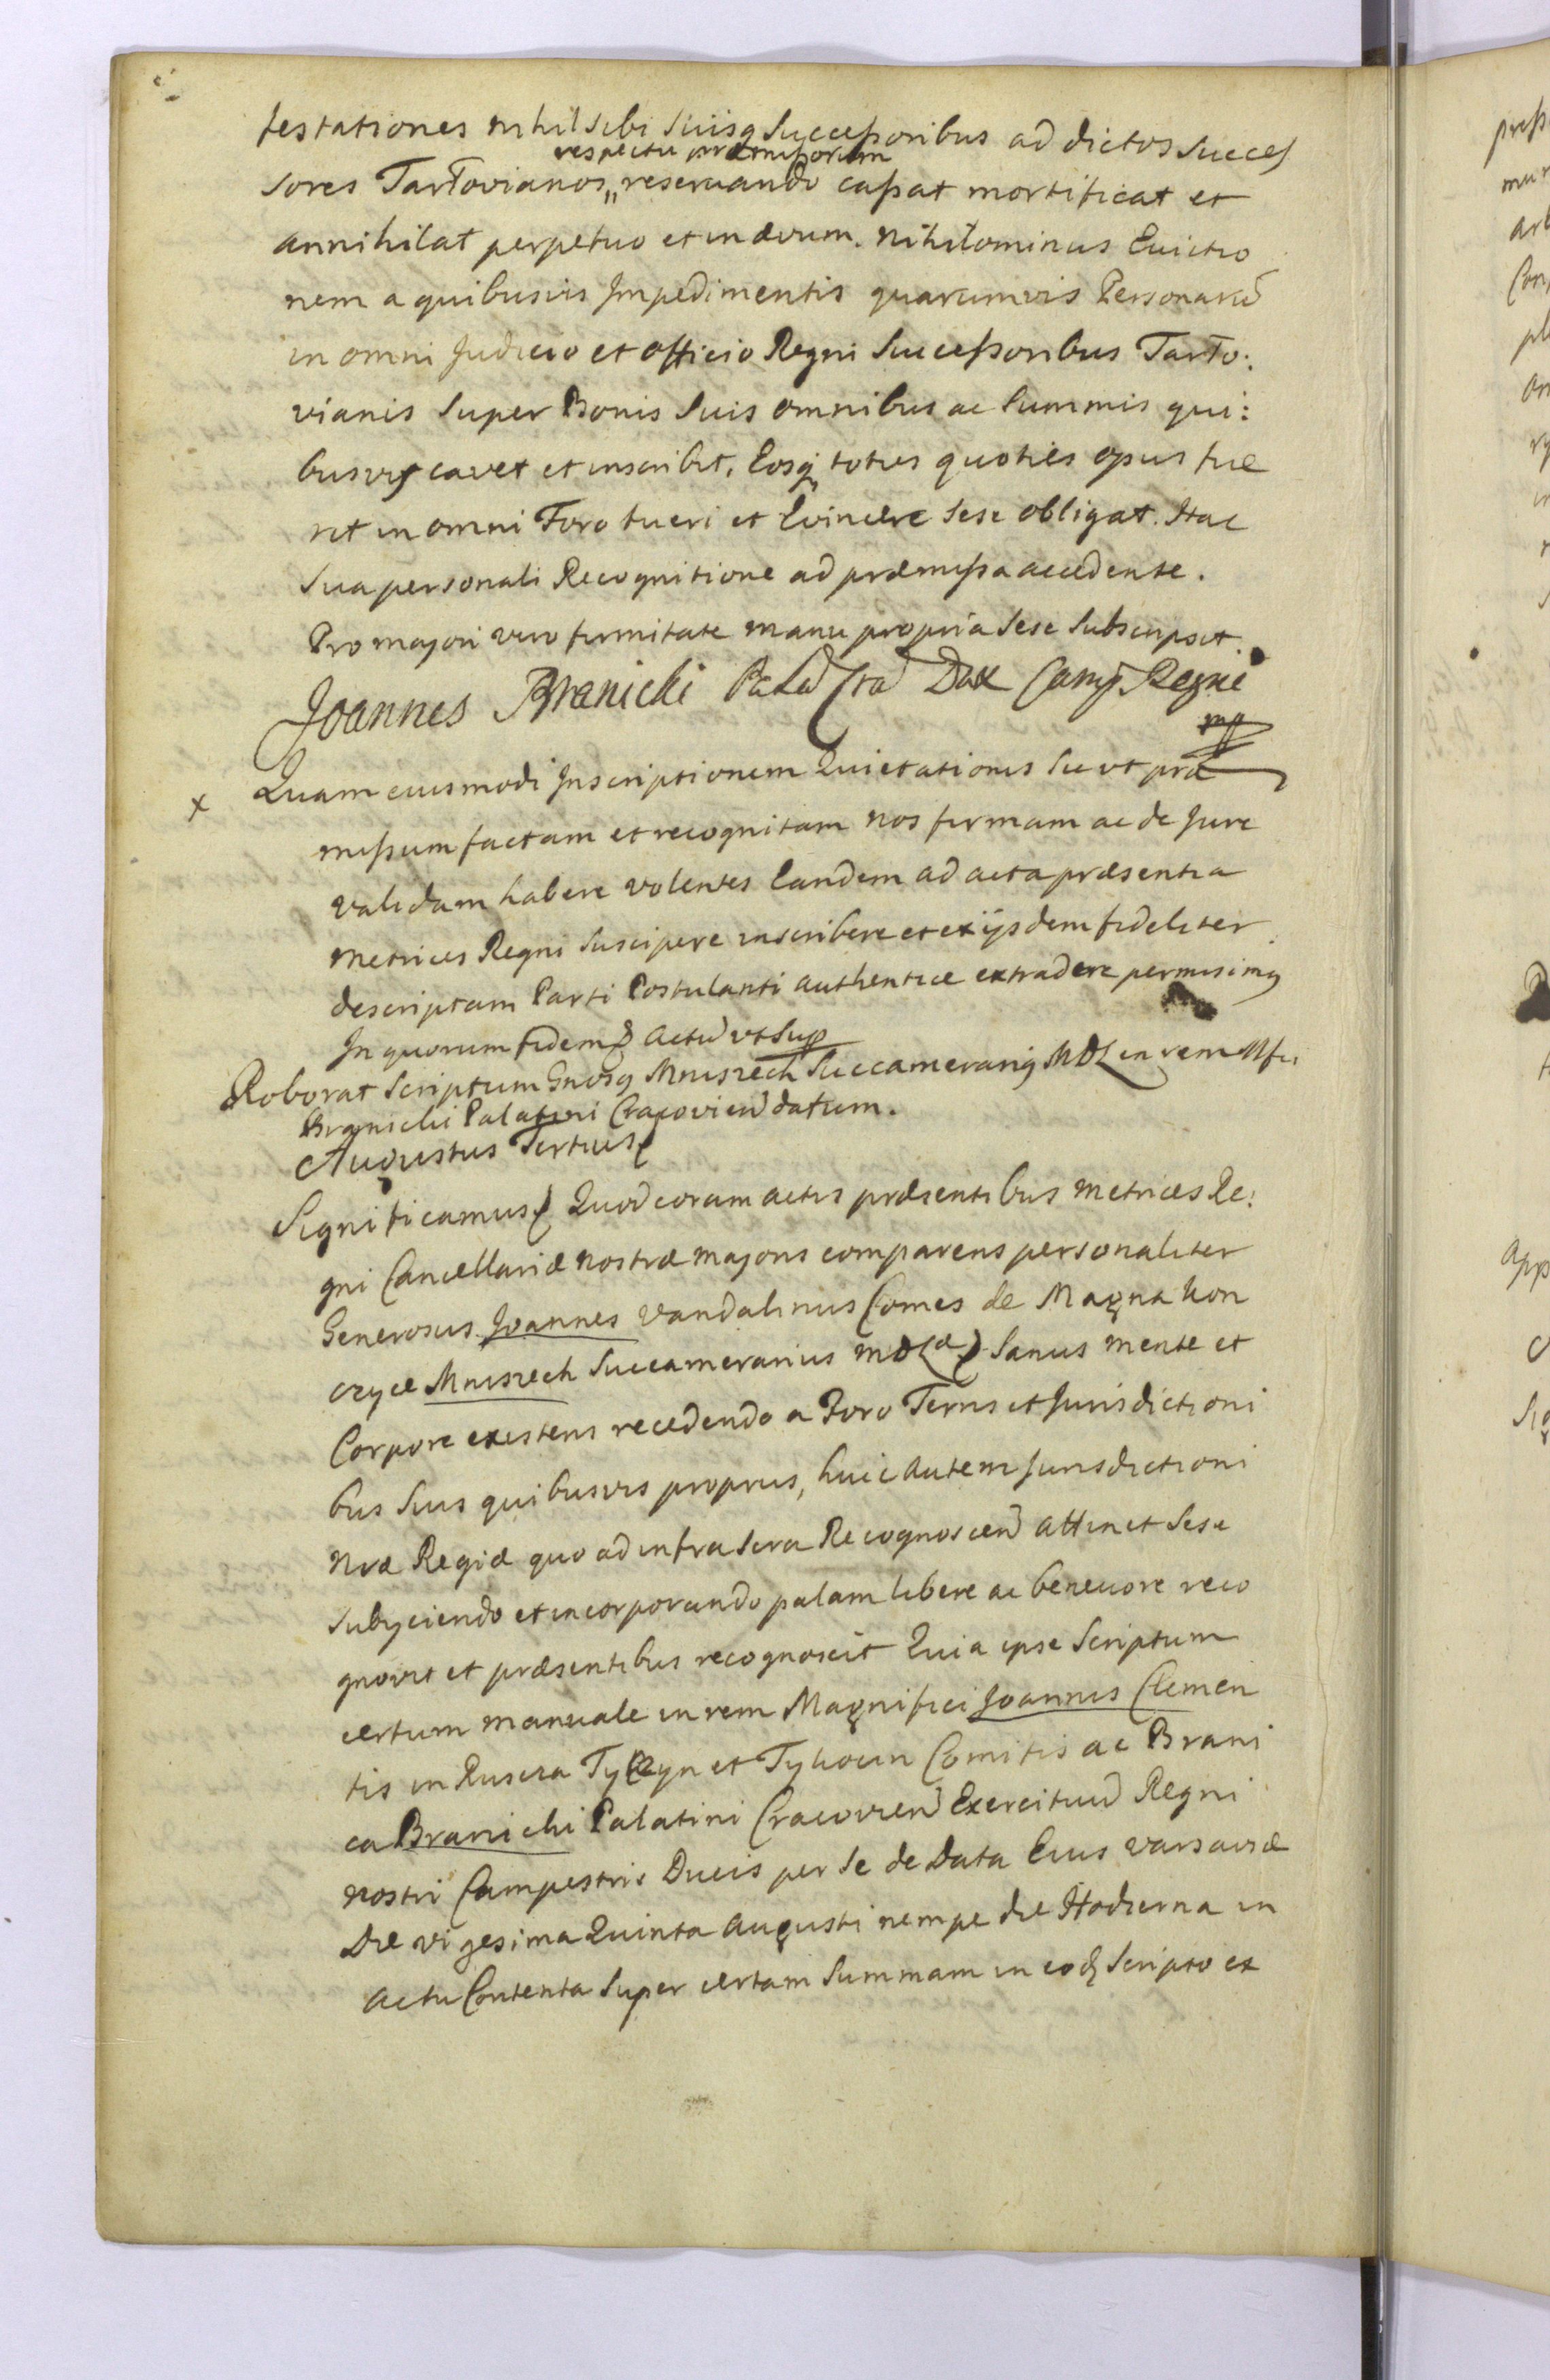 testationes nihil sibi suisq Successoribus ad dictos Succes
respectu præmissorum
sores Tartovianos,, reservando cassat mortificat et
annihilat perpetuo et in ævum. nihilominus Evictio
nem a quibusvis Impedimentis quarumvis Personarũ
in omni Judicio et officio Regni Successoribus Tarto:
vianis Super Bonis Suis omnibus ac Summis qui:
busvis cavet et inscribit, Eosq toties quoties opus fue
rit in omni Foro tueri et Evincere sese obligat. Hac
Sua personali Recognitione ad præmissa accedente.
Pro majori vero firmitate manu propria Sese Subscripsit.
Joannes Branicki Dux Camp Regni
mp
x Quam eiusmodi Inscriptionem Quietationis Sic ut præ
missum factam et recognitam nos firmam ac de Jure
validam habere volentes Eandem ad acta præsentia
metrices Regni Suscipere inscribere et ex ijsdem fideliter
descriptam Parti Postulanti authentice extradere permisimq
In quorum fidem actũ ut Sup
Roborat Scriptum Gnosq Mniszech Succamerariq MDL in rem Mfci
Branicki Palatini Cracovien datum.
Augustus Tertius
Significamus Quod coram actis præsentibus metrices Re:
gni Cancellariæ nostræ majoris comparens personaliter
Generosus Joannes Vandalinus Comes de Magna Kon
czyce Mniszech Succamerarius MDL Sanus mente et
Corpore existens recedendo a Foro Terris et Jurisdictioni
bus Suis quibusvis proprus, huic autem Jurisdictioni
Nræ Regiæ quo ad infra Scra Recognoscen attinet Sese
subijciendo et incorporando palam libere ac benevore reco
gnovit et præsentibus recognoscit Quia ipse Scriptum
certum manuale in rem Magnifici Joannis Clemen
tis in Ruszcza Tyczyn et Tykocin Comitis ac Brani
ca Branicki Palatini Cracovien Exercituũ Regni
nostri Campestris Ducis per Se de Data Eius Varsaviæ
Die vigesima Quinta Augusti nempe die Hodierna in
actu Contenta Super certam Summam in eoq Scripto ex